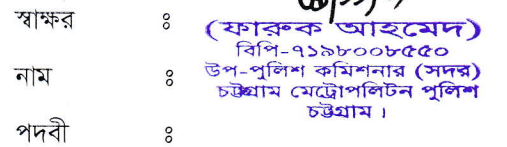 স্বাক্ষর ঃ
(ফারুক আহমেদ)
বিপি-৭১৯৮০০৮৫৫০
নাম ঃ উপ-পুলিশ কমিশনার (সদর)
চট্টগ্রাম মেট্রোপলিটন পুলিশ
চট্টগ্রাম।
পদবী ঃ